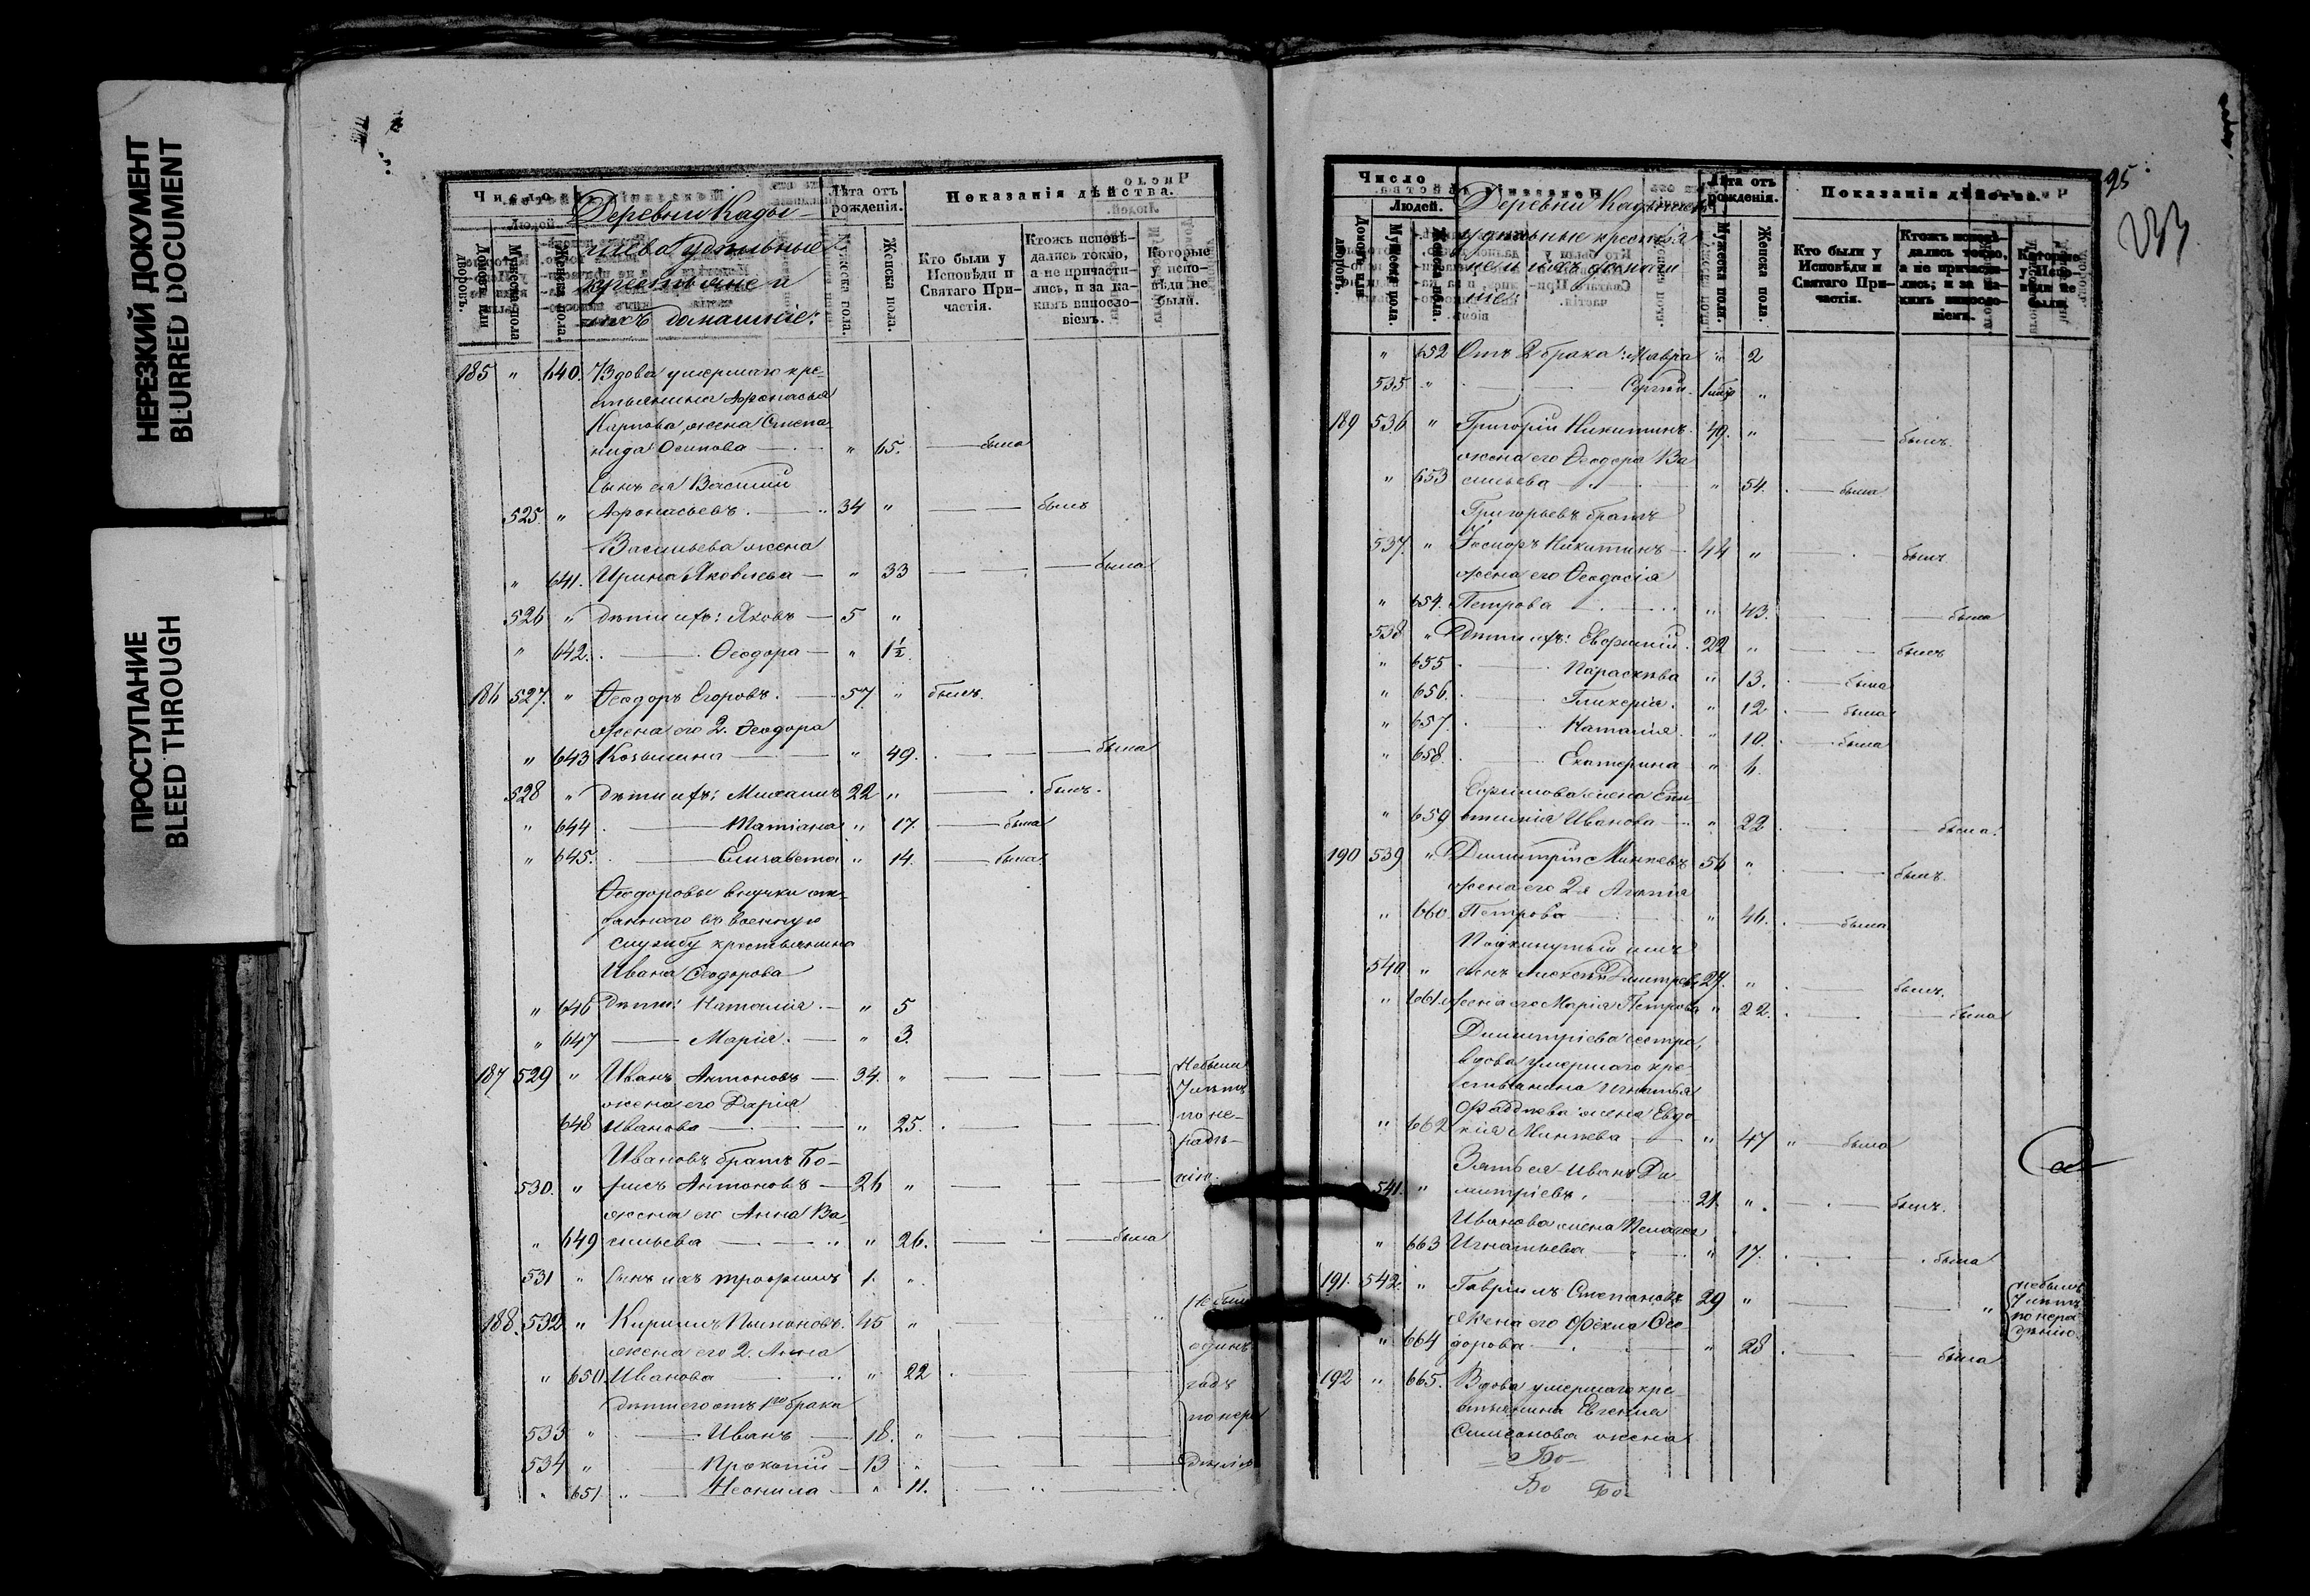 НЕРЕЗКИЙ ДОКУМЕНТ
BLURRED DOCUMENT
ПРОСТУПАНИЕ
BLEED THROUGH
Число
Людей.
Домовъ или дворовъ.
Мужеска пола.
Женска пола.
Деревни Кады-
шева удѣльные
крестьяне и
ихъ домашніе:
Лѣта отъ рожденія.
Мужеска пола.
Женска пола.
Показанія дѣйства.
Кто были у Исповѣди и Святаго Причастія.
Ктожъ исповѣдались токмо, а не причастились, и за какимъ винословіемъ.
Которые у исповѣди не были.
185 " 640. Вдова умершаго кре-
стьянина Афонасья
Карпова, жена Степа
нида Осипова " 65. была
Сынъ ея Василій
525. " Афонасьевъ. 34 " былъ
Васильева жена
" 641. Ирина Яковлева " 33 была
526 " дѣти ихъ: Яковъ 5 "
" 642. Ѳеодора " 1½
186 527. " Ѳеодоръ Егоровъ. 57 " былъ.
жена его 2. Ѳеодора
" 643 Козьмина " 49. была
528 " дѣти ихъ: Михаилъ 22 " былъ.
" 644 Татіана " 17. была
" 645. Елизавета " 14. была.
Ѳеодоровы внучки от-
даннаго въ военную
службу крестьянина
Ивана Ѳеодорова
" 646 дѣти: Наталія. " 5
" 647 Марія. " 3.
187 529 " Иванъ Антоновъ 34. "
жена его Дарія
648 Иванова " 25.
Небыли
7 лѣтъ
по не-
радѣ-
нію.
Ивановъ братъ Бо-
530. " рисъ Антоновъ 26 "
жена его Анна Ва
" 649 сильева " 26. была
531 " Сынъ ихъ Трофимъ 1. "
188. 532 " Кирилъ 45 "
жена его 2. Анна
" 650. Иванова " 22
дѣти его отъ 1го брака
533 " Иванъ 18. "
534 " Прокопій 13 "
" 651 Неонила " 11.
Не были
одинъ
годъ
по нера
дѣнію
95
233
Число
Людей.
Домовъ или дворовъ.
Мужеска пола.
Женска пола.
Деревни Кадышева
удѣльные крестья
не и ихъ домаш
ніе:
Лѣта отъ рожденія.
Мужеска пола.
Женска пола.
Показанія дѣйства.
Кто были у Исповѣди и Святаго Причастія.
Ктожъ исповѣдались токмо, а не причастились; и за какимъ винословіемъ.
Которые у Исповѣди не были.
" 652 Отъ 2 брака: Мавра " 2
535. " Сергѣй. "
189 536 " Григорій Никитинъ 49. " былъ.
жена его Ѳеодора Ва
" 653 сильева " 54. была
Григорьевъ братъ
537. " Никитинъ 44 " былъ.
жена его Ѳеодосія
" 654. Петрова " 43. была
538 " Дѣти ихъ: Евфимій. 22 " былъ
" 655 Параскева " 13. была
" 656. Гликерія. " 12 была
" 657. Наталія. " 10. была
" 658. Екатерина "
Евфимова жена
" 659 Иванова " 22 была.
190 539 " Димитрій Минѣевъ 56 " былъ.
жена его 2я Агапія
" 660. Петрова " 46. была
Подкинутый имъ
540 " сынъ Алексѣй Дмитріевъ 27. " былъ.
" 661. жена его Марія Петрова " 22. была
Димитріева сестра,
вдова умершаго кре
стьянина Игнатья
Фаддѣева жена Евдо
" 662 кія Минѣева " 47 " была
Зять ея Иванъ Ди
541. " митріевъ. 21. " былъ.
Иванова жена Пелагея
" 663 Игнатьева " 17. была
191. 542. " Гавріилъ Степановъ 29 "
Небылъ
7 лѣтъ
по нера
дѣнію.
Жена его Фёкла Ѳео-
" 664 дорова " 28 была
192 " 665. Вдова умершаго кре-
стьянина Евгенія
Симеонова жена
Бо
Бо Бо